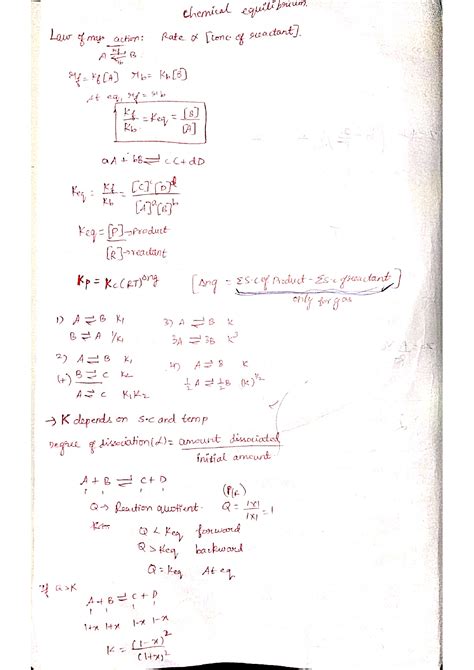 Chemical equilibrium
Law of mass action: Rate ∝ [Conc. of reactant].
A ⇌ B
kf
kb
rf = kf[A] rb = Kb[B]
At eq, rf = rb
Kf/Kb = Keq = [B]/[A]
aA + bB ⇌ cC + dD
Keq = Kf/Kb = [C]^c [D]^d / [A]^a [B]^b
Keq = [P] → Product
[R] → reactant
Kp = Kc(RT)^Δng [Δng = Σs.c of Product - Σs.c of reactant]
only for gas
1) A ⇌ B K1 3) A ⇌ B K
B ⇌ A 1/K1 3A ⇌ 3B K^3
2) A ⇌ B K1 A ⇌ B K
(+) B ⇌ C K2 1/2 A ⇌ 1/2 B (K)^1/2
A ⇌ C K1K2
→ K depends on s.c and temp
Degree of dissociation (α) = amount dissociated / initial amount
A + B ⇌ C + D
1 1 1 1 (P/R)
Q → Reaction quotient. Q = 1×1/1×1 = 1
Q < Keq forward
Q > Keq backward
Q = Keq At eq
If Q > K
A + B ⇌ C + D
1 1 1 1
1+x 1+x 1-x 1-x
K = (1-x)^2/(1+x)^2